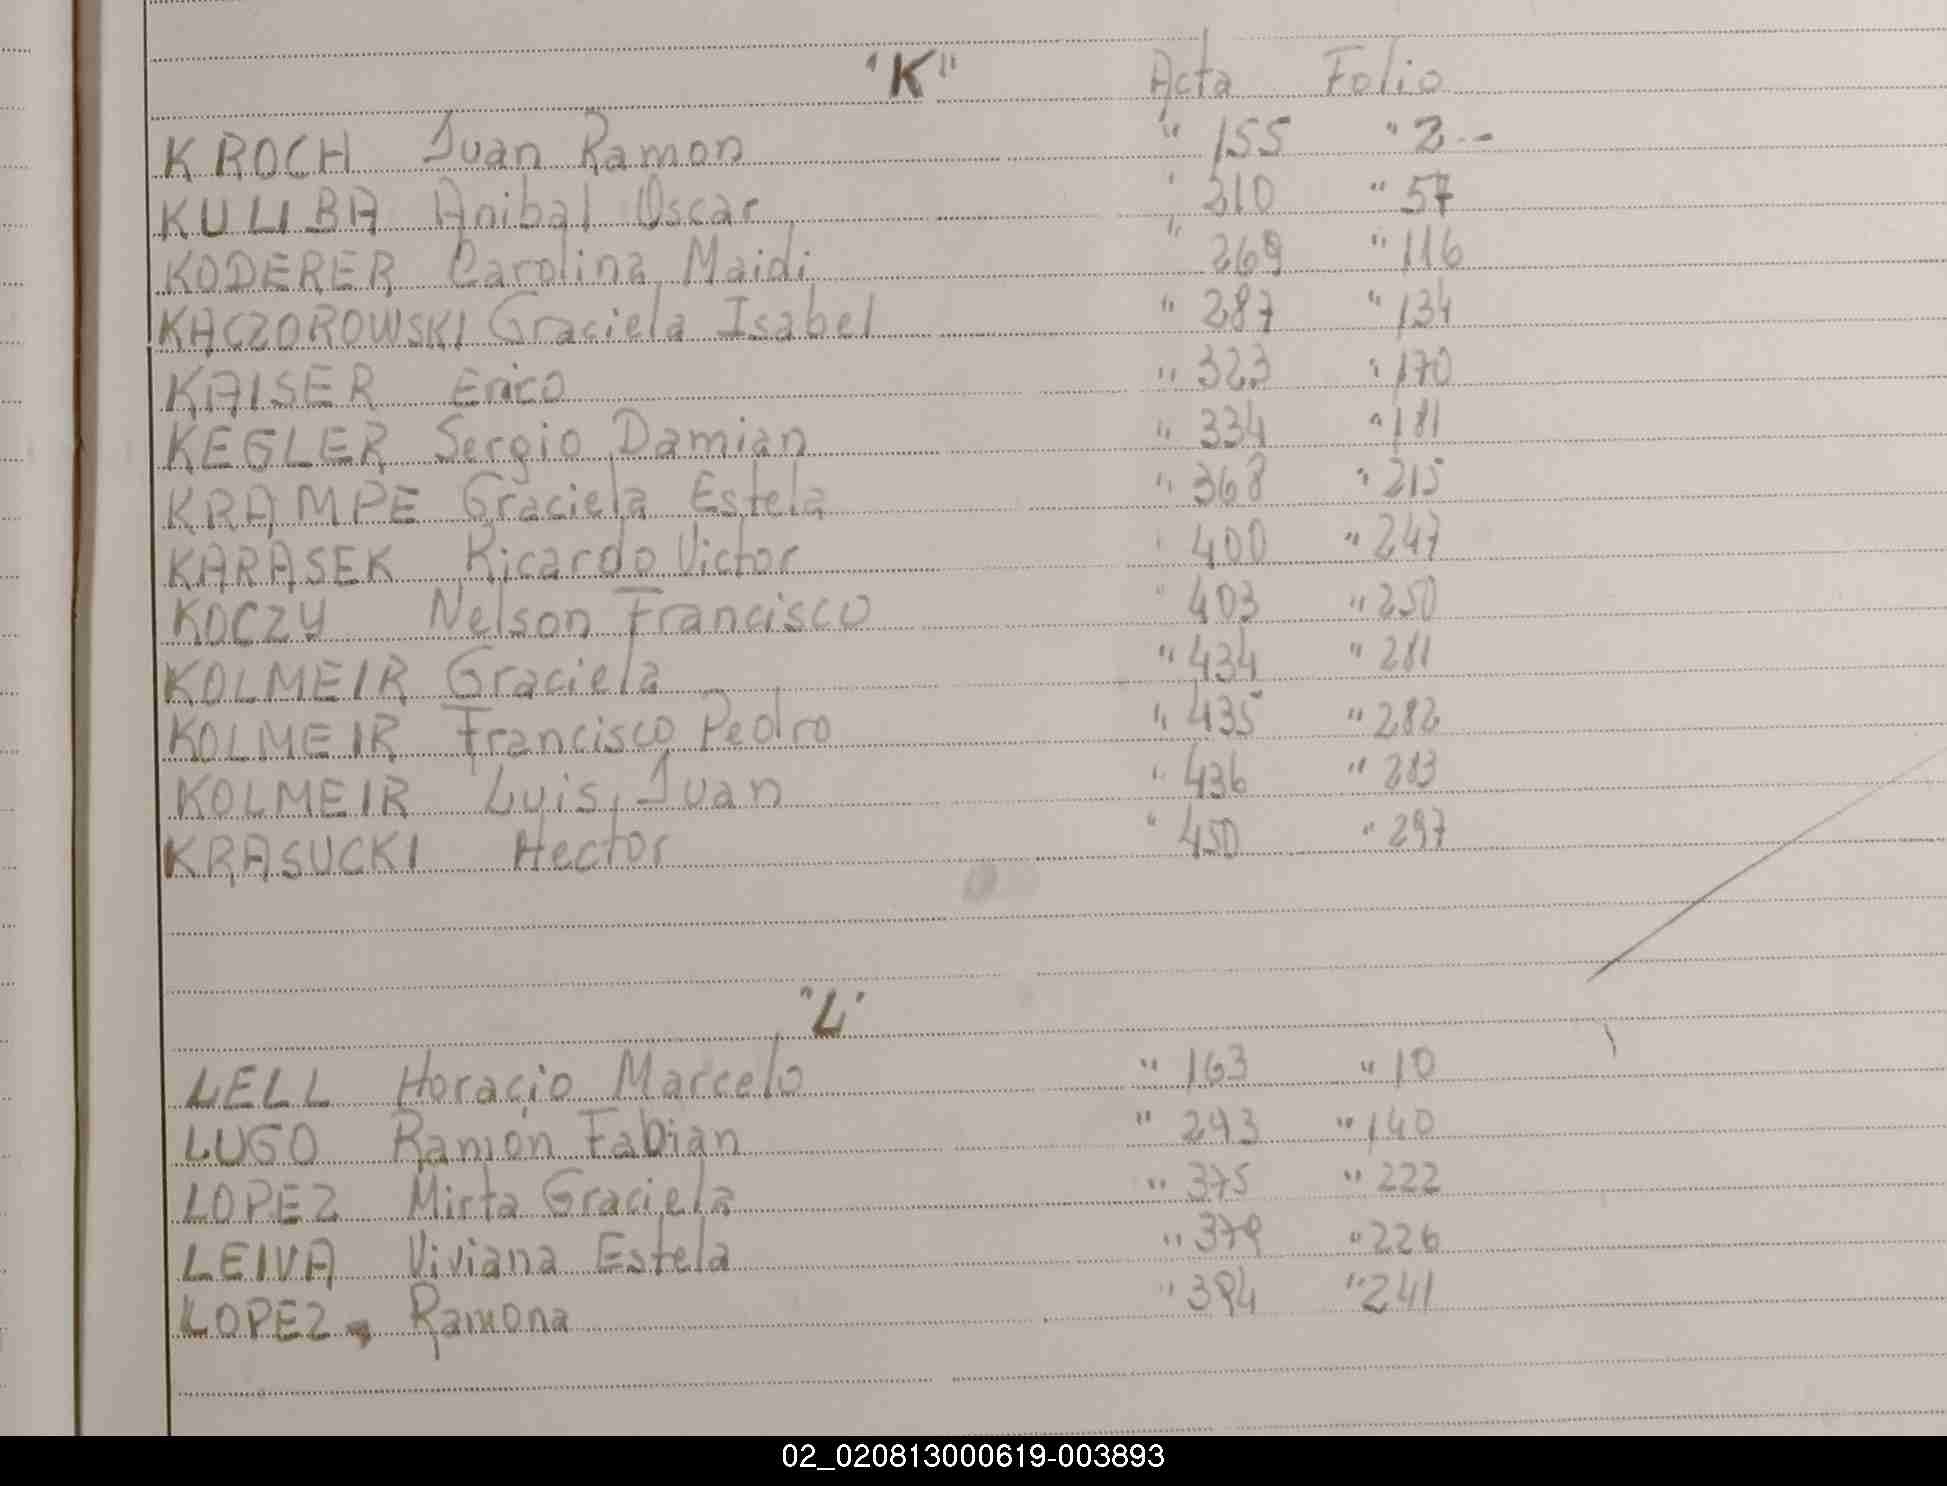 "K" Acta Folio
KROCH Juan Ramon " 155 " 2--
KULIBA Anibal Oscar " 210 " 57
KODERER Carolina Maidi " 269 " 116
KACZOROWSKI Graciela Isabel " 287 " 134
KAISER Erico " 323 " 170
KEGLER Sergio Damian " 334 " 181
KRAMPE Graciela Estela " 368 " 215
KARASEK Ricardo Victor " 400 " 247
KOCZY Nelson Francisco " 403 " 250
KOLMEIR Graciela " 434 " 281
KOLMEIR Francisco Pedro " 435 " 282
KOLMEIR Luis Juan " 436 " 283
KRASUCKI Hector " 450 " 297
"L"
LELL Horacio Marcelo " 163 " 10
LUGO Ramón Fabian " 293 " 140
LOPEZ Mirta Graciela " 375 " 222
LEIVA Viviana Estela " 379 " 226
LOPEZ Ramona " 394 " 241
02_020813000619-003893